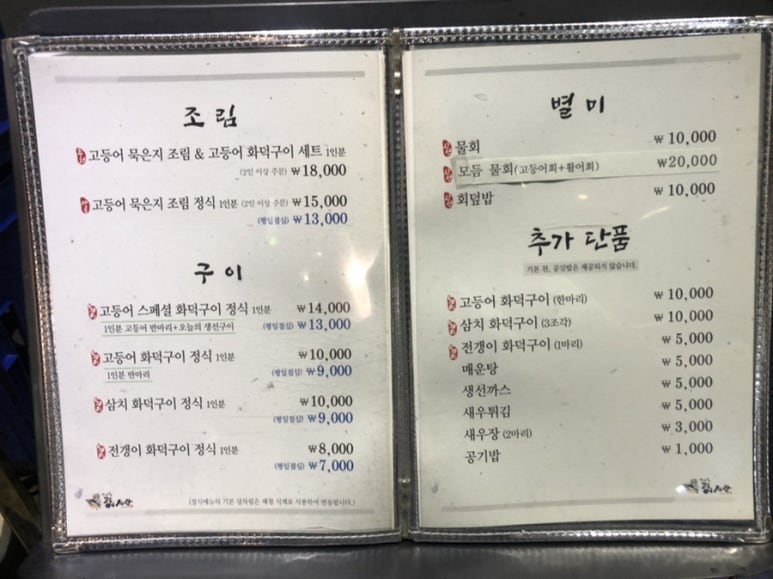 조림
고등어 묵은지 조림 & 고등어 화덕구이 세트 1인분
(2인 이상 주문) ₩18,000
고등어 묵은지 조림 정식 1인분 (2인 이상 주문) ₩15,000
(평일점심) ₩13,000
구이
고등어 스페셜 화덕구이 정식 1인분 ₩14,000
1인분 고등어 반마리+오늘의 생선구이 (평일점심) ₩13,000
고등어 화덕구이 정식 1인분 ₩10,000
1인분 반마리 (평일점심) ₩9,000
삼치 화덕구이 정식 1인분 ₩10,000
(평일점심) ₩9,000
전갱이 화덕구이 정식 1인분 ₩8,000
(평일점심) ₩7,000
(정식메뉴의 기본 상차림은 제철 식재료 사용하여 변동됩니다.)
별미
물회 ₩10,000
모듬 물회(고등어회+활어회) ₩20,000
회덮밥 ₩10,000
추가 단품
기본 찬, 공깃밥은 제공되지 않습니다.
고등어 화덕구이 (한마리) ₩10,000
삼치 화덕구이 (3조각) ₩10,000
전갱이 화덕구이 (1마리) ₩5,000
매운탕 ₩5,000
생선까스 ₩5,000
새우튀김 ₩5,000
새우장 (2마리) ₩3,000
공기밥 ₩1,000